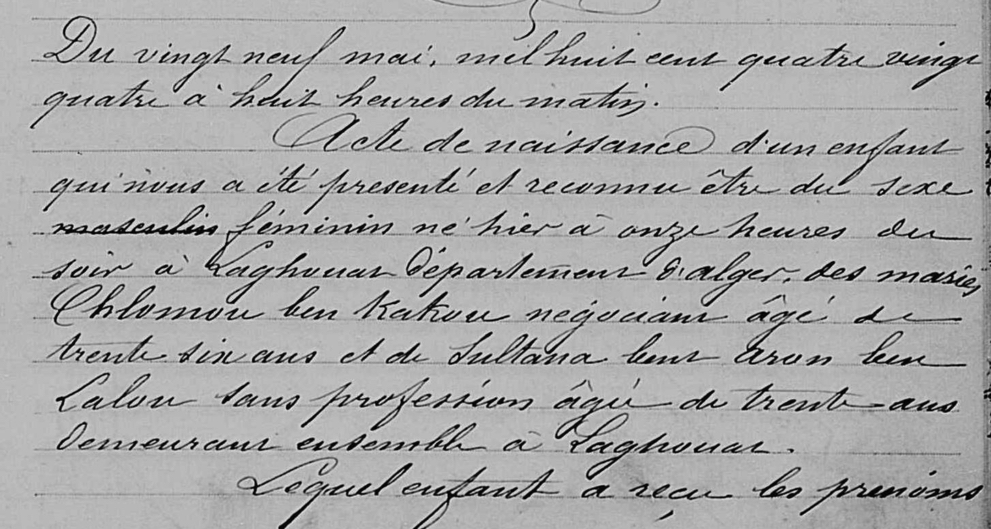 Du vingt neuf mai, mil huit cent quatre vingt
quatre à huit heures du matin.
Acte de naissance d'un enfant
qui nous a été présenté et reconnu être du sexe
masculin féminin né hier à onze heures du
soir à Laghouat département d'alger, des mariés
Chlomou ben Kakou négociant âgé de
trente six ans et de Sultana bent Aron ben
Lalou sans profession âgée de trente ans
demeurant ensemble à Laghouat.
Lequel enfant a reçu les prénoms